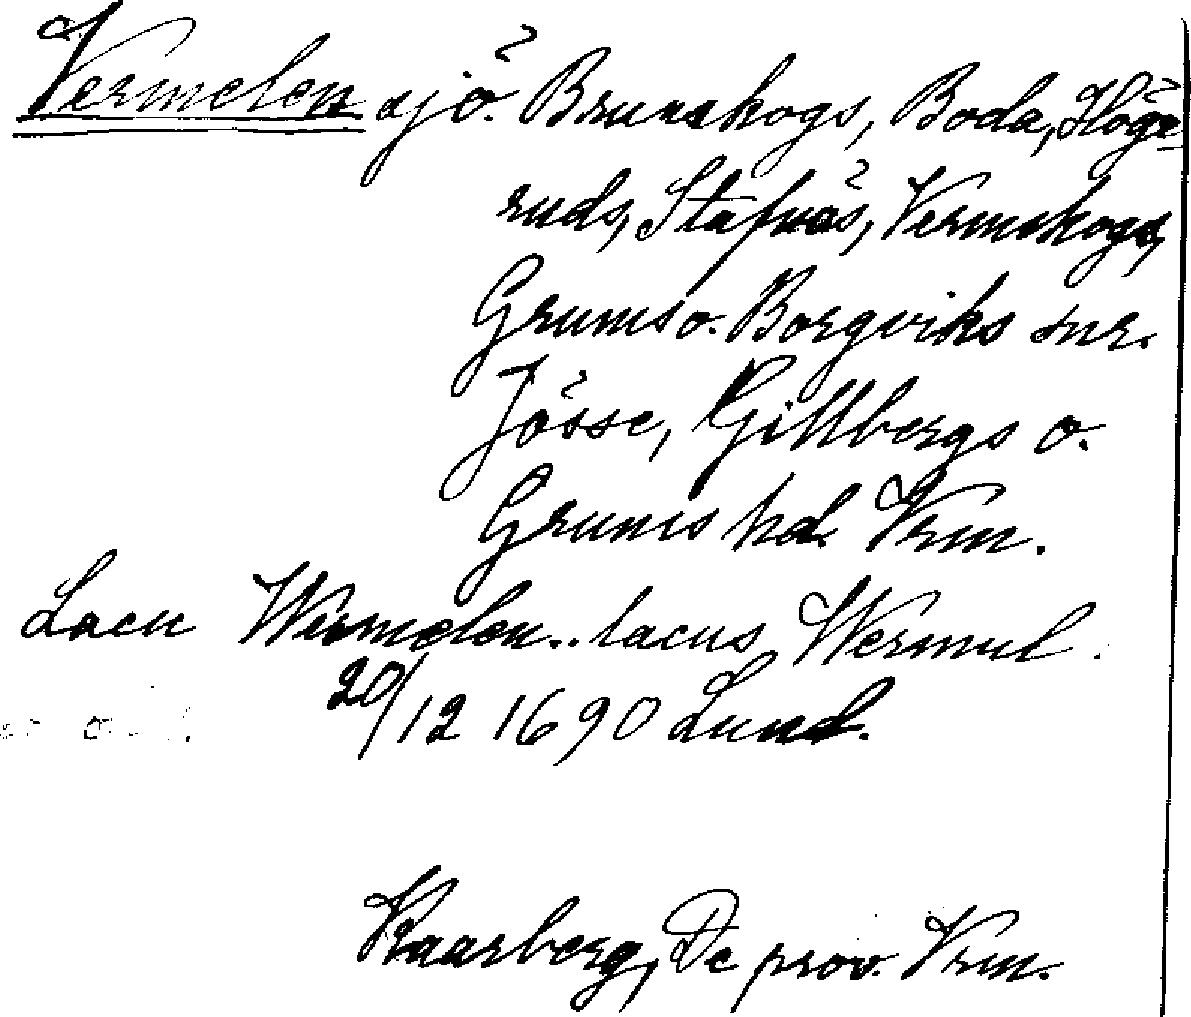 Vermelen sjö. Brunskogs, Boda, Höge-
ruds, Stafnäs, Vermskogs,
Grums o. Borgviks snr.
Jösse, Gillbergs o.
Grums hd. Vrm.
Lacu Wermelen.. lacus Wermul.
20/12 1690 Lund.
Kaarberg, De prov. Vrm.